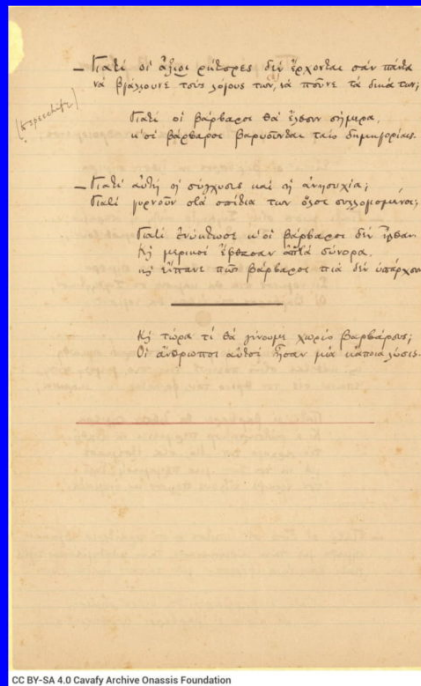 — Γιατί οἱ ἄξιοι ρήτορες δὲν ἔρχονται σὰν πάντα
νὰ βγάλουνε τοὺς λόγους των, νὰ ποῦνε τὰ δικά των;
Γιατί οἱ βάρβαροι θὰ ἔλθουν σήμερα,
κ' οἱ βάρβαροι βαρυοῦνται ταὶς δημηγορίαις.
— Γιατί αὐτὴ ἡ σύγχυσις καὶ ἡ ἀνησυχία;
Γιατί γυρνοῦν στὰ σπίτια των ὅλοι συλλογισμένοι;
Γιατί ἐνύκτωσε κ' οἱ βάρβαροι δὲν ἦλθαν.
Κη μερικοὶ ἔφθασαν ἀπ' τὰ σύνορα,
κη εἴπανε πῶς βάρβαροι πιὰ δὲν ὑπάρχουν
Κη τώρα τί θὰ γίνουμε χωρὶς βαρβάρους;
Οἱ ἄνθρωποι αὐτοὶ ἦσαν μιὰ κάποια λύσις.
CC BY-SA 4.0 Cavafy Archive Onassis Foundation